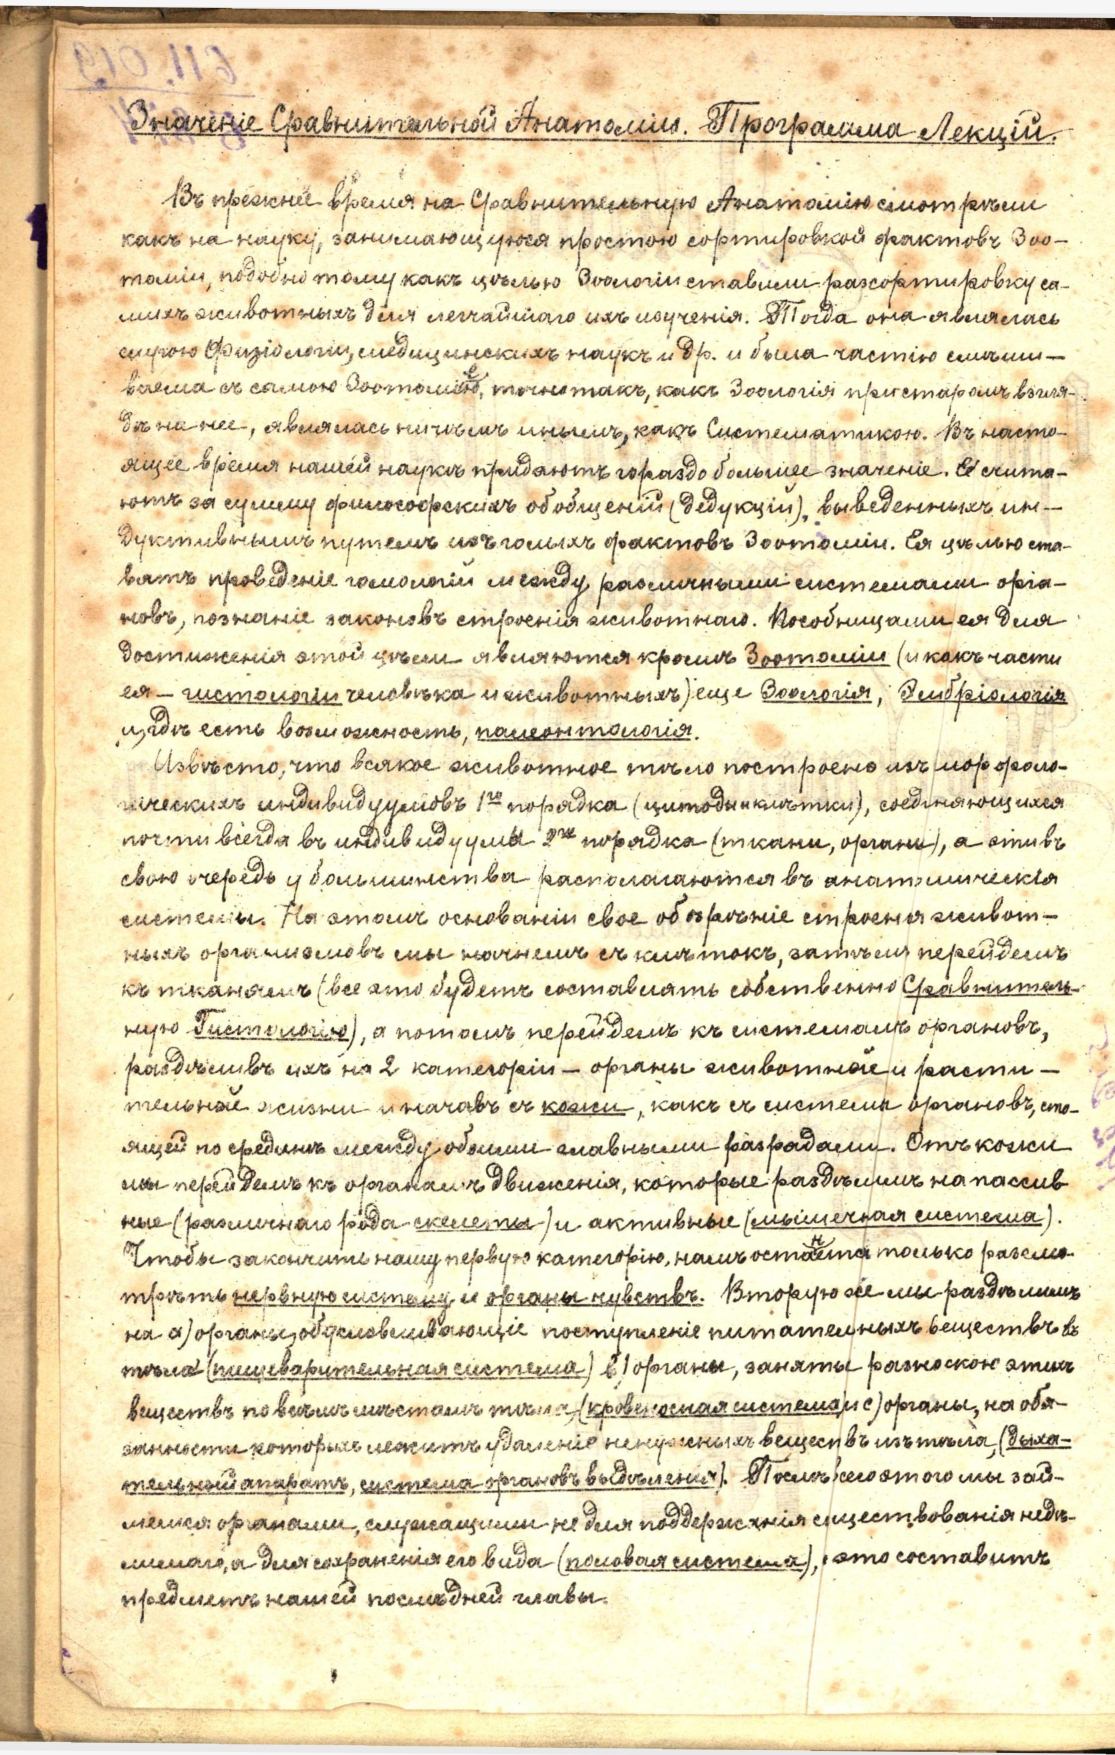 Значеніе Сравнительной Анатоміи. Программа Лекцій.
Въ прежнее время на Сравнительную Анатомію смотрѣли
какъ на науку, занимающуюся простою сортировкой фактовъ Зоо-
томіи, подобно тому какъ цѣлью Зоологіи ставили разсортировку са-
михъ животныхъ для легчайшаго ихъ изученія. Тогда она являлась
слугою Физіологіи, медицинскихъ наукъ и др. и была частію смѣши-
ваема съ самою Зоотоміею, точно такъ, какъ Зоологія при старомъ взгля-
дѣ на нее, являлась ничѣмъ инымъ, какъ Систематикою. Въ насто-
ящее время нашей наукѣ придаютъ гораздо большее значеніе. Ее счита-
ютъ за сумму философскихъ обобщеній (дедукцій), выведенныхъ ин-
дуктивнымъ путемъ изъ голыхъ фактовъ Зоотоміи. Ея цѣлью ста-
вятъ проведеніе гомологій между различными системами орга-
новъ, познаніе законовъ строенія животнаго. Пособницами ея для
достиженія этой цѣли являются кромѣ Зоотоміи (и какъ части
ея – гистологіи человѣка и животныхъ) еще Зоологія, Эмбріологія
и, гдѣ есть возможность, палеонтологія.
Извѣстно, что всякое животное тѣло построено изъ морфоло-
гическихъ индивидуумовъ 1го порядка (цитоды и клѣтки), соединяющихся
почти всегда въ индивидуумы 2го порядка (ткани, органы), а эти въ
свою очередь у большинства располагаются въ анатомическія
системы. На этомъ основаніи свое обозрѣніе строенія живот-
ныхъ организмовъ мы начнемъ съ клѣтокъ, затѣмъ перейдемъ
къ тканямъ (все это будетъ составлять собственно Сравнитель-
ную Гистологію), а потомъ перейдемъ къ системамъ органовъ,
раздѣливъ ихъ на 2 категоріи – органы животной и расти-
тельной жизни и начавъ съ кожи, какъ съ системы органовъ, сто-
ящей по срединѣ между обоими главными разрядами. Отъ кожи
мы перейдемъ къ органамъ движенія, которые раздѣлимъ на пассив
ные (различнаго рода скелеты) и активные (мышечная система).
Чтобы закончить нашу первую категорію, намъ останется только разсмо-
трѣть нервную систему и органы чувствъ. Вторую же мы раздѣлимъ
на a) органы, обусловливающіе поступленіе питательныхъ веществъ въ
тѣло (пищеварительная система) b) органы, занятые разноскою этихъ
веществъ по всѣмъ мѣстамъ тѣла, (кровеносная система) и c) органы, на обя-
занности которыхъ лежитъ удаленіе ненужныхъ веществъ изъ тѣла, (дыха-
тельный апаратъ, система органовъ выдѣленія). Послѣ всего этого мы зай-
мемся органами, служащими не для поддержанія существованія недѣ-
лимаго, а для сохраненія его вида (половая система), это составитъ
предметъ нашей послѣдней главы.